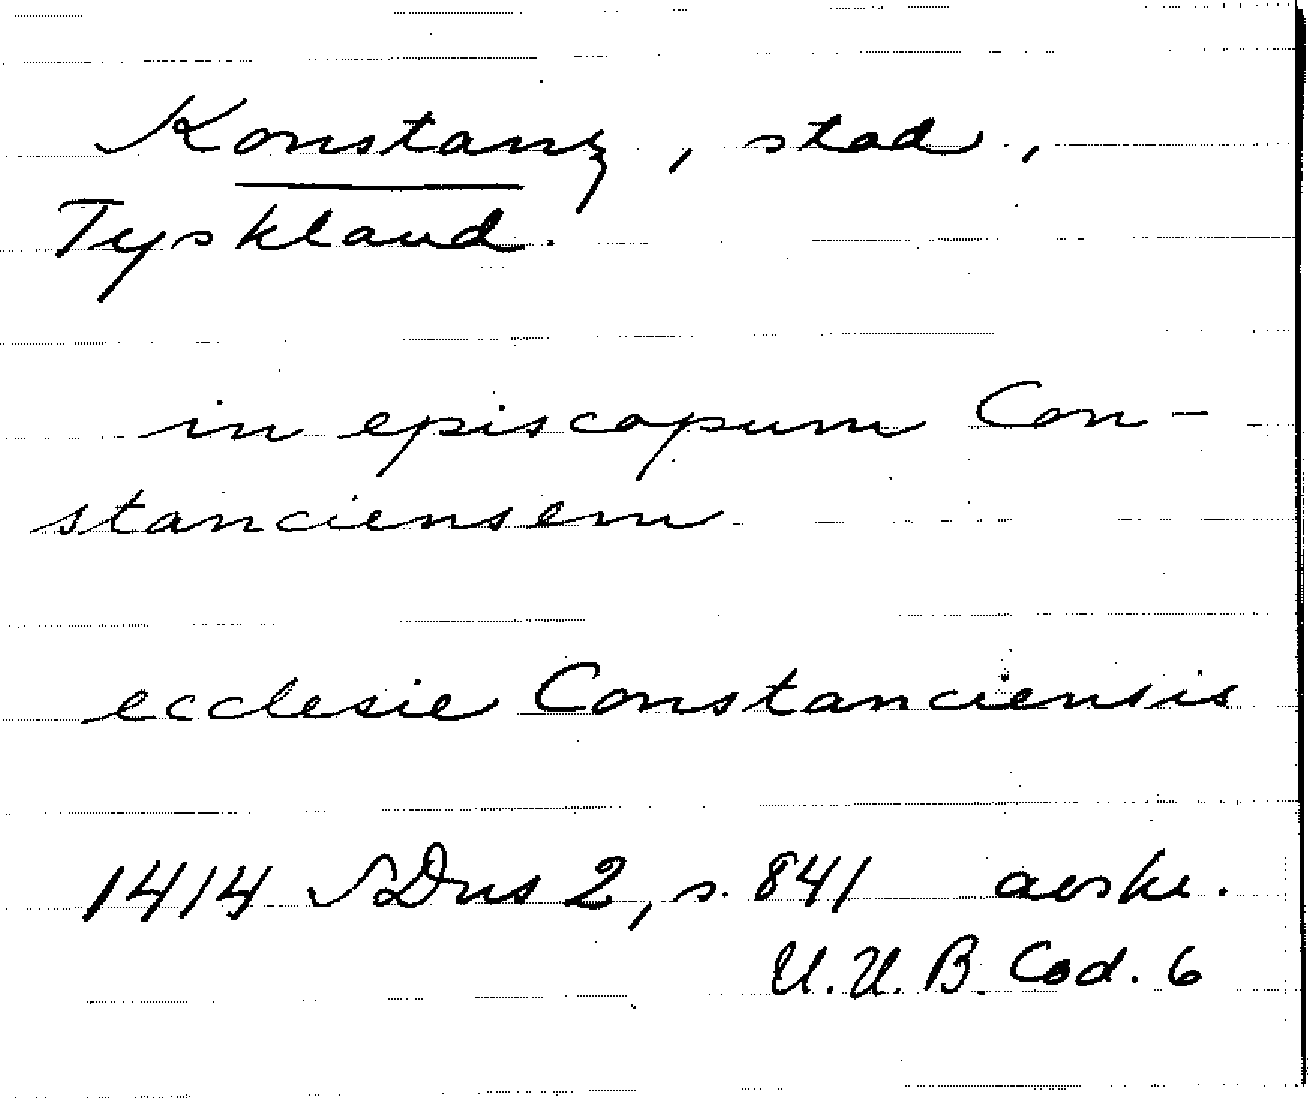 Konstanz, stad,
Tyskland.
in episcopum Con-
stanciensem
ecclesie Constanciensis
1414 SDns 2, s. 841 avskr.
U.U.B. Cod. 6